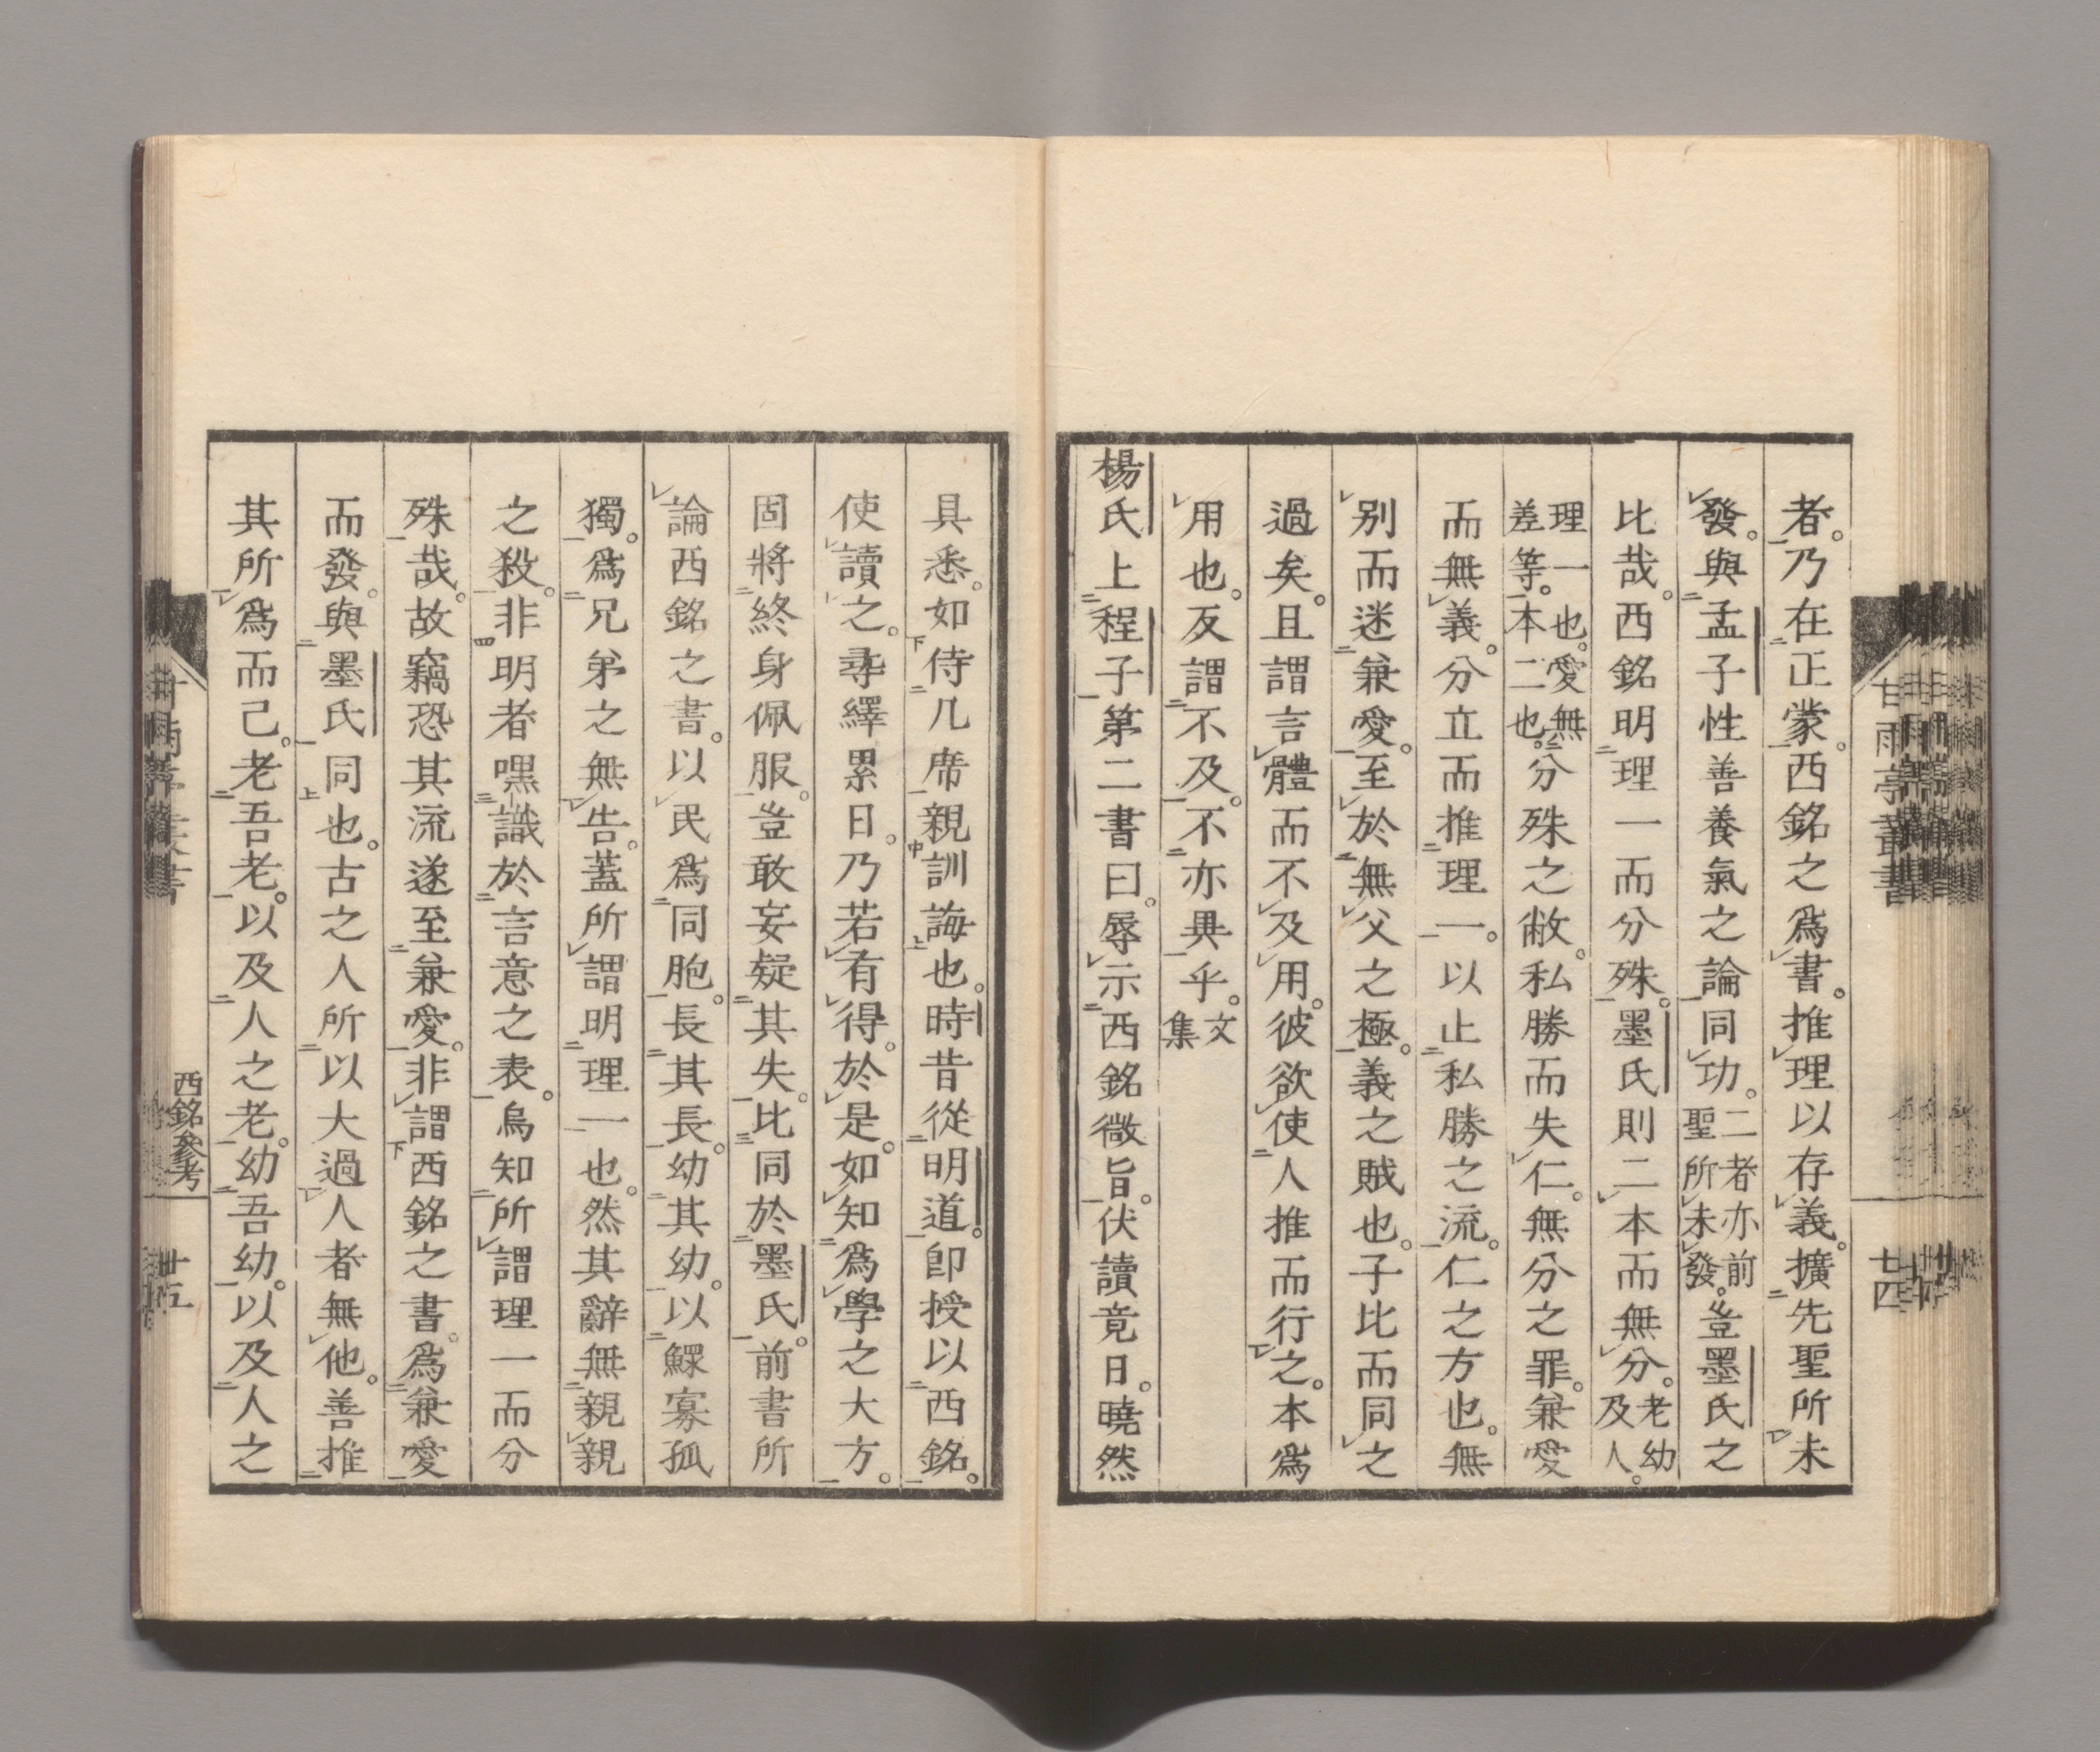 者。乃在正蒙。西銘之爲書。推理以存義。擴先聖所未
發。與孟子性善養氣之論同功。二者亦前聖所未發。豈墨氏之
比哉。西銘明理一而分殊。墨氏則二本而無分。老幼及人。
理一也。愛無差等。本二也。分殊之敝。私勝而失仁。無分之罪。兼愛
而無義。分立而推理一。以止私勝之流。仁之方也。無
別而迷兼愛。至於無父之極。義之賊也。子比而同之
過矣。且謂言體而不及用。彼欲使人推而行之。本爲
用也。反謂不及。不亦異乎。文集
楊氏上程子第二書曰。辱示西銘微旨。伏讀竟日。曉然
具悉。如侍几席親訓誨也。時昔從明道。卽授以西銘。
使讀之。尋繹累日。乃若有得。於是。如知爲學之大方。
固將終身佩服。豈敢妄疑其失。比同於墨氏。前書所
論西銘之書。以民爲同胞。長其長。幼其幼。以鰥寡孤
獨。爲兄弟之無告。蓋所謂明理一也。然其辭無親親
之殺。非明者嘿識於言意之表。烏知所謂理一而分
殊哉。故竊恐其流遂至兼愛。非謂西銘之書。爲兼愛
而發。與墨氏同也。古之人所以大過人者無他。善推
其所爲而已。老吾老。以及人之老。幼吾幼。以及人之
甘雨亭叢書
廿四
西銘參考
廿五